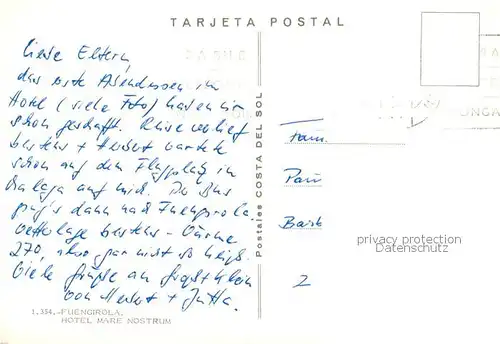 TARJETA POSTAL
Liebe Eltern,
das erste Abendessen im
Hotel (siehe Foto) haben wir
schon geschafft. Reise verlief
bestens + Herbert wartete
schon auf dem Flugplatz in
Malaga auf mich. Der Bus
ging's dann nach Fuengirola.
Wetterlage bestens - Wärme
270, aber gar nicht so heiß.
Viele Grüße an
von Herbert + Jutta.
1.334.-FUENGIROLA.
HOTEL MARE NOSTRUM
Postales COSTA DEL SOL
Fam.
Paul
2
privacy protection
Datenschutz